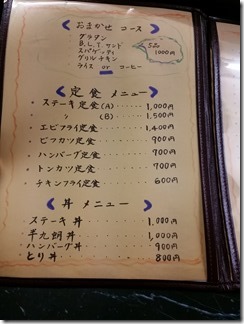 おまかせ コース
グラタン
B.L.T.サンド
スパゲッティ
グリルチキン
ライス or コーヒー
1000円
定食 メニュー
ステーキ定食(A)‥‥1,000円
〃 (B)‥‥1,500円
エビフライ定食‥‥1,400円
ビフカツ定食‥‥900円
ハンバーグ定食‥‥700円
トンカツ定食‥‥700円
チキンフライ定食‥‥600円
丼 メニュー
ステーキ丼‥‥1,000円
半九朗丼‥‥1,000円
ハンバーグ丼‥‥900円
とり丼‥‥800円